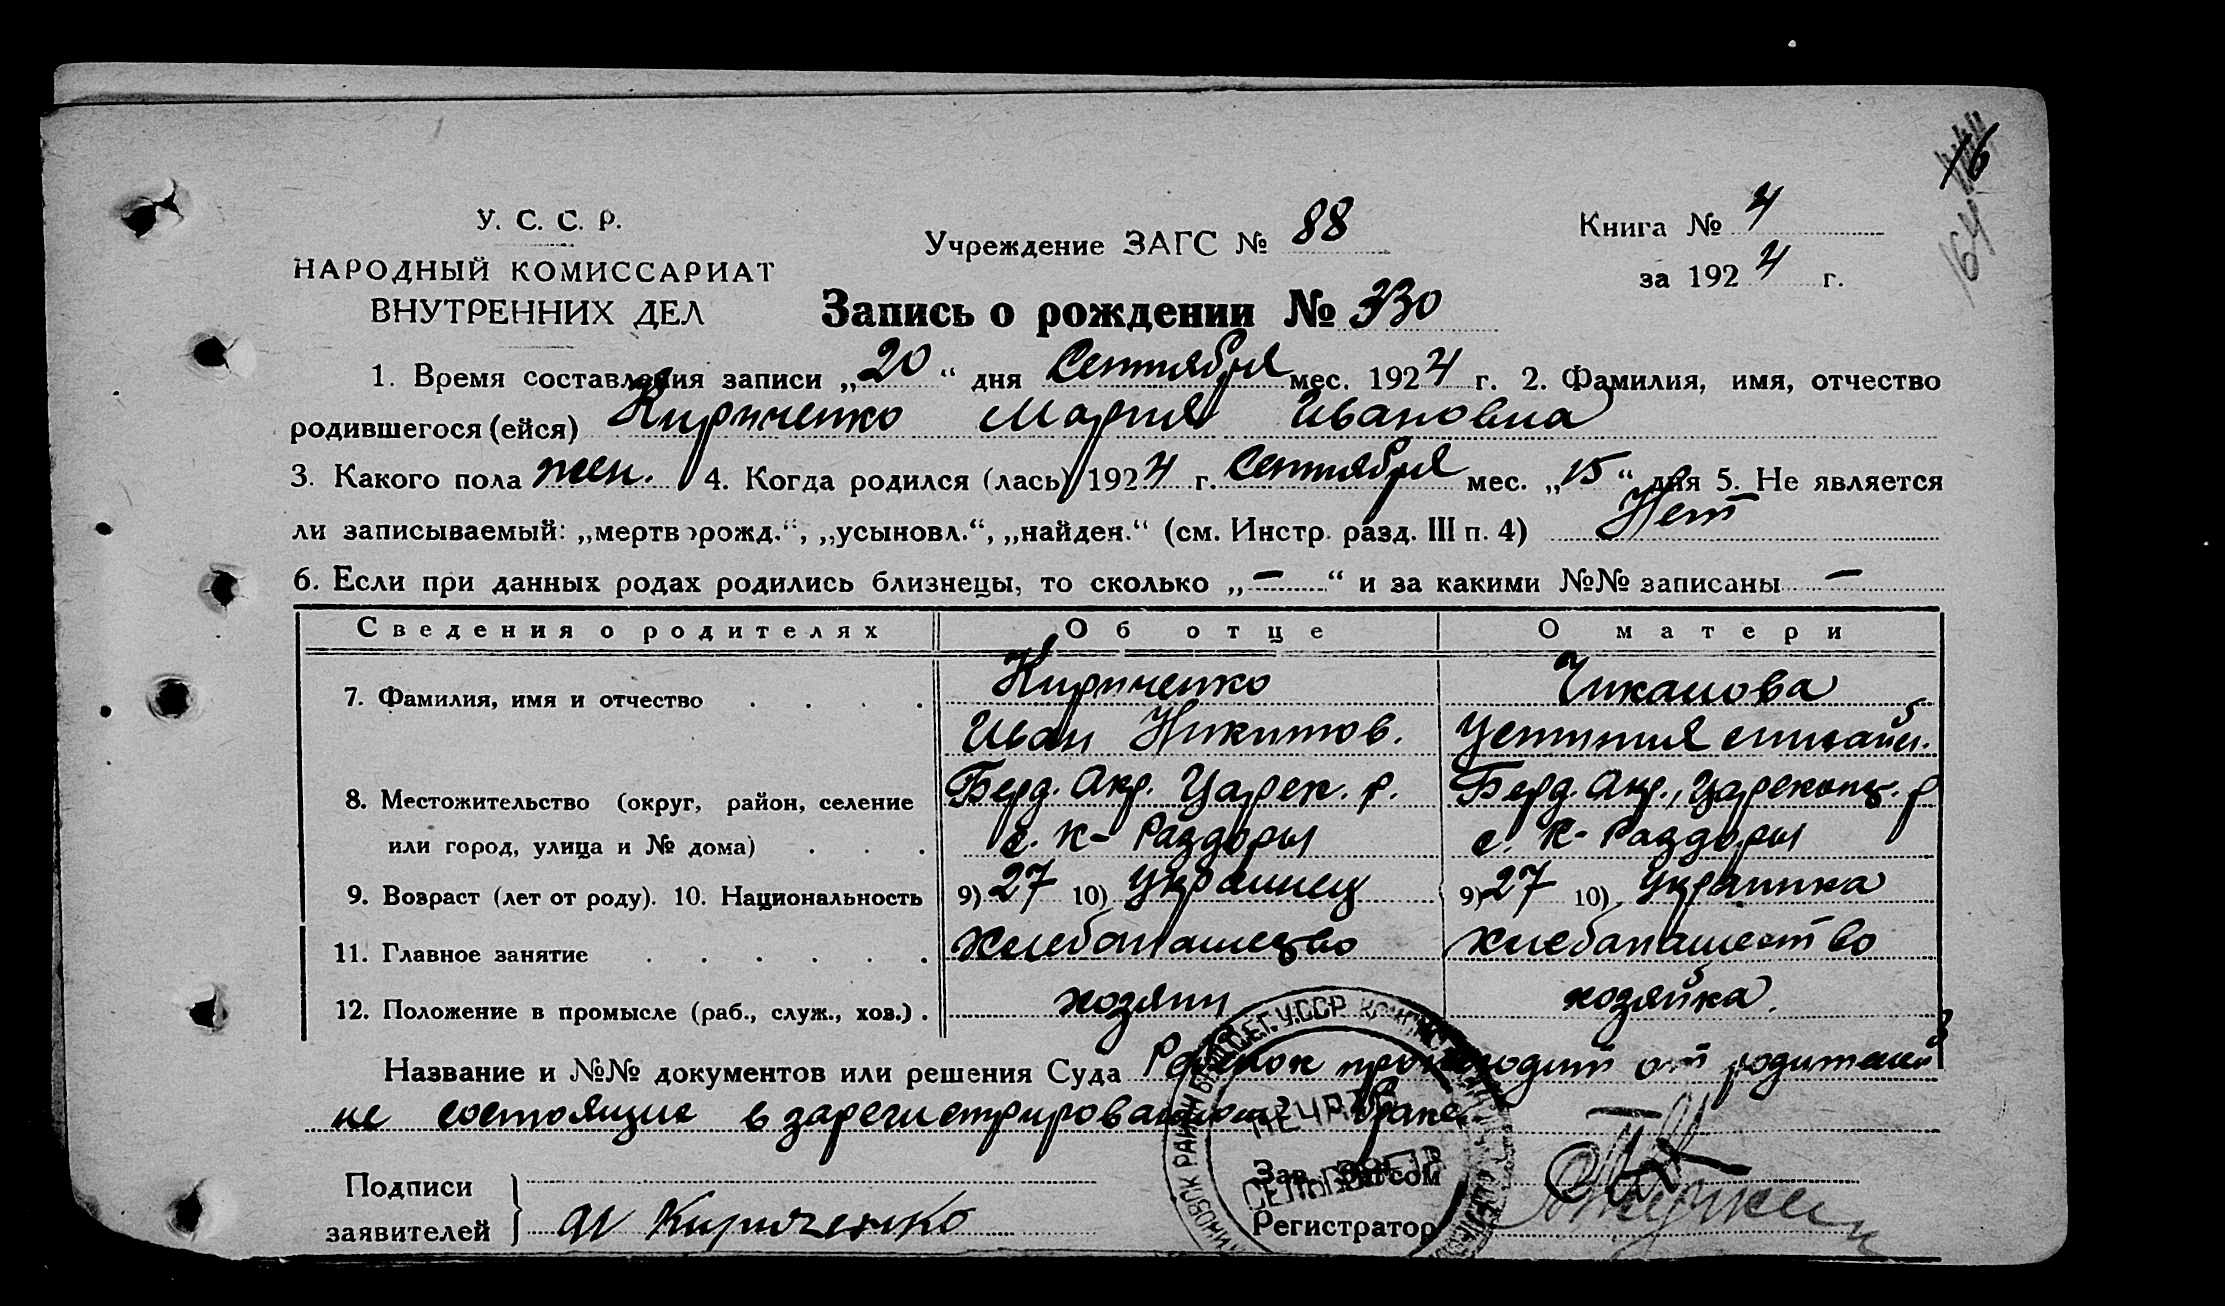 У. С. С. Р.
НАРОДНЫЙ КОМИССАРИАТ
ВНУТРЕННИХ ДЕЛ
Учреждение ЗАГС № 88
Книга № 4
за 1924 г.
164
Запись о рождении № 330
1. Время составления записи „20“ дня Сентября мес. 1924 г. 2. Фамилия, имя, отчество
родившегося (ейся) Кириченко Мария Ивановна
3. Какого пола жен. 4. Когда родился (лась) 1924 г. Сентября мес. „15“ дня 5. Не является
ли записываемый: „мертворожд.“, „усыновл.“, „найден.“ (см. Инстр. разд. III п. 4) Нет
6. Если при данных родах родились близнецы, то сколько „—“ и за какими №№ записаны —
Сведения о родителях Об отце О матери
7. Фамилия, имя и отчество . . . . Кириченко Чиканова
Иван Никитов. Устиния
8. Местожительство (округ, район, селение Берд. Окр. Царек. р. Берд. Окр., Царекон. р
или город, улица и № дома) . . . с. К-Раздоры с. К-Раздоры
9. Возраст (лет от роду). 10. Национальность 9) 27 10) Украинец 9) 27 10) Украинка
11. Главное занятие . . . . . . Хлебопашество Хлебапашество
12. Положение в промысле (раб., служ., хоз.) . хозяин хозяйка.
Название и №№ документов или решения Суда Ребенок происходит от родителей
не состоящие в зарегистрированном браке.
Подписи
заявителей
И Кириченко
Зав. Загсом
Регистратор
ПЕЧАТЬ